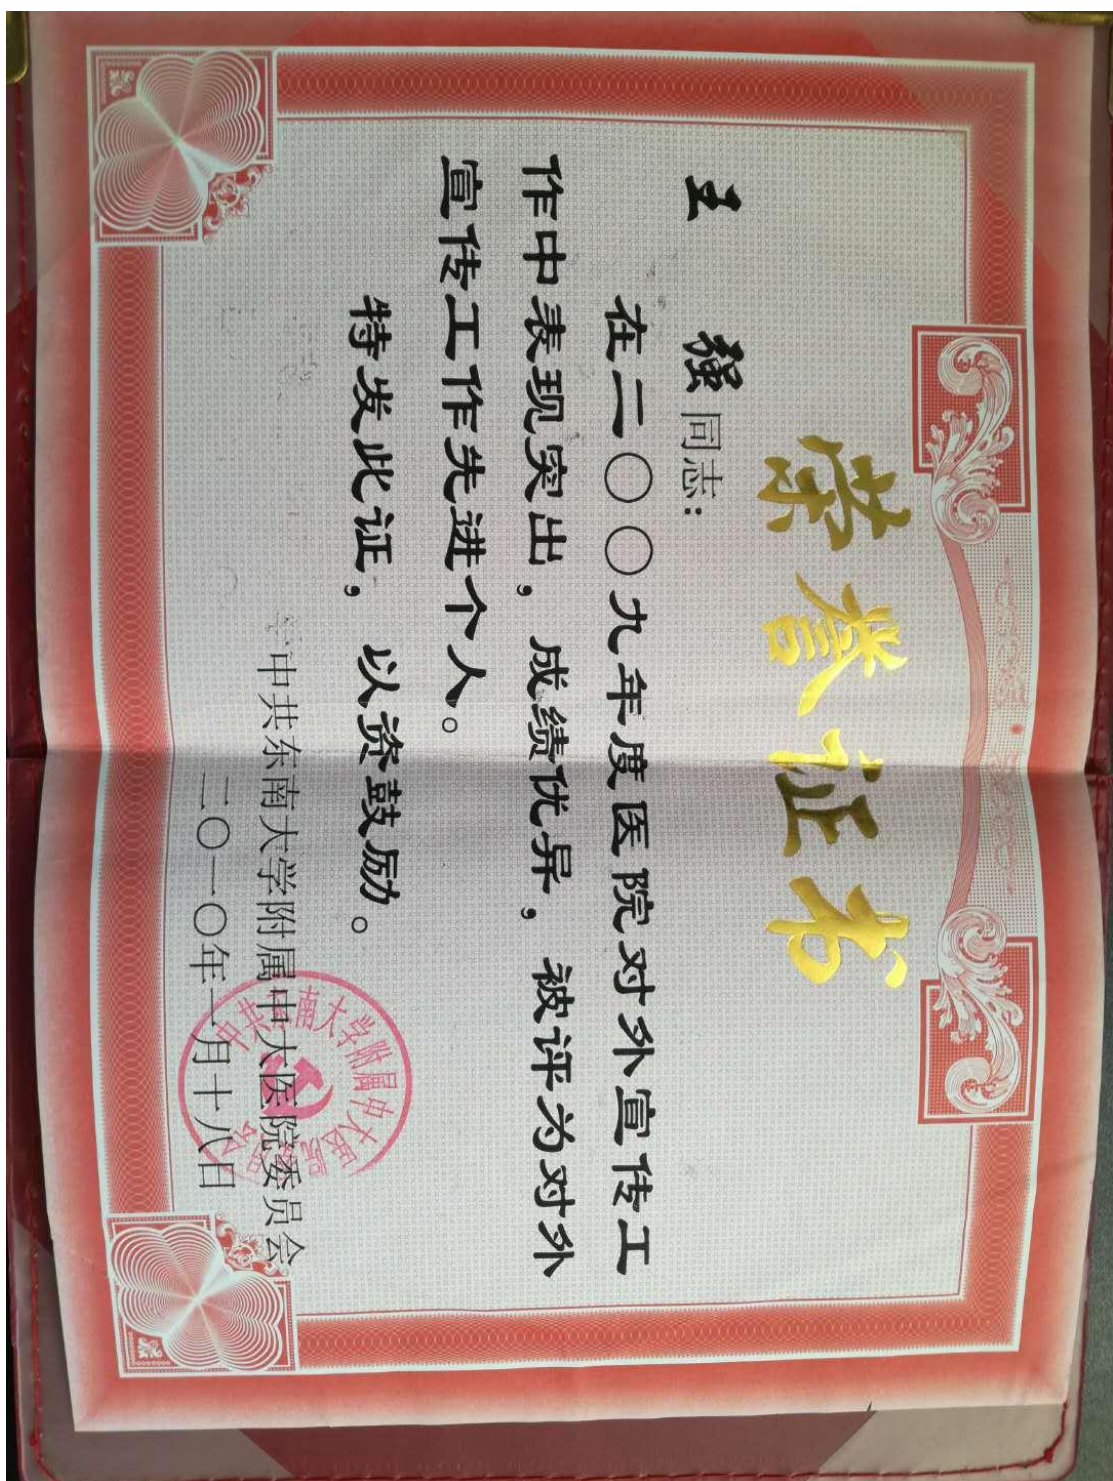 荣誉证书
王 强同志：
在二〇〇九年度医院对外宣传工
作中表现突出，成绩优异，被评为对外
宣传工作先进个人。
特发此证，以资鼓励。
中共东南大学附属中大医院委员会
二〇一〇年一月十八日
中共东南大学附属中大医院委员会